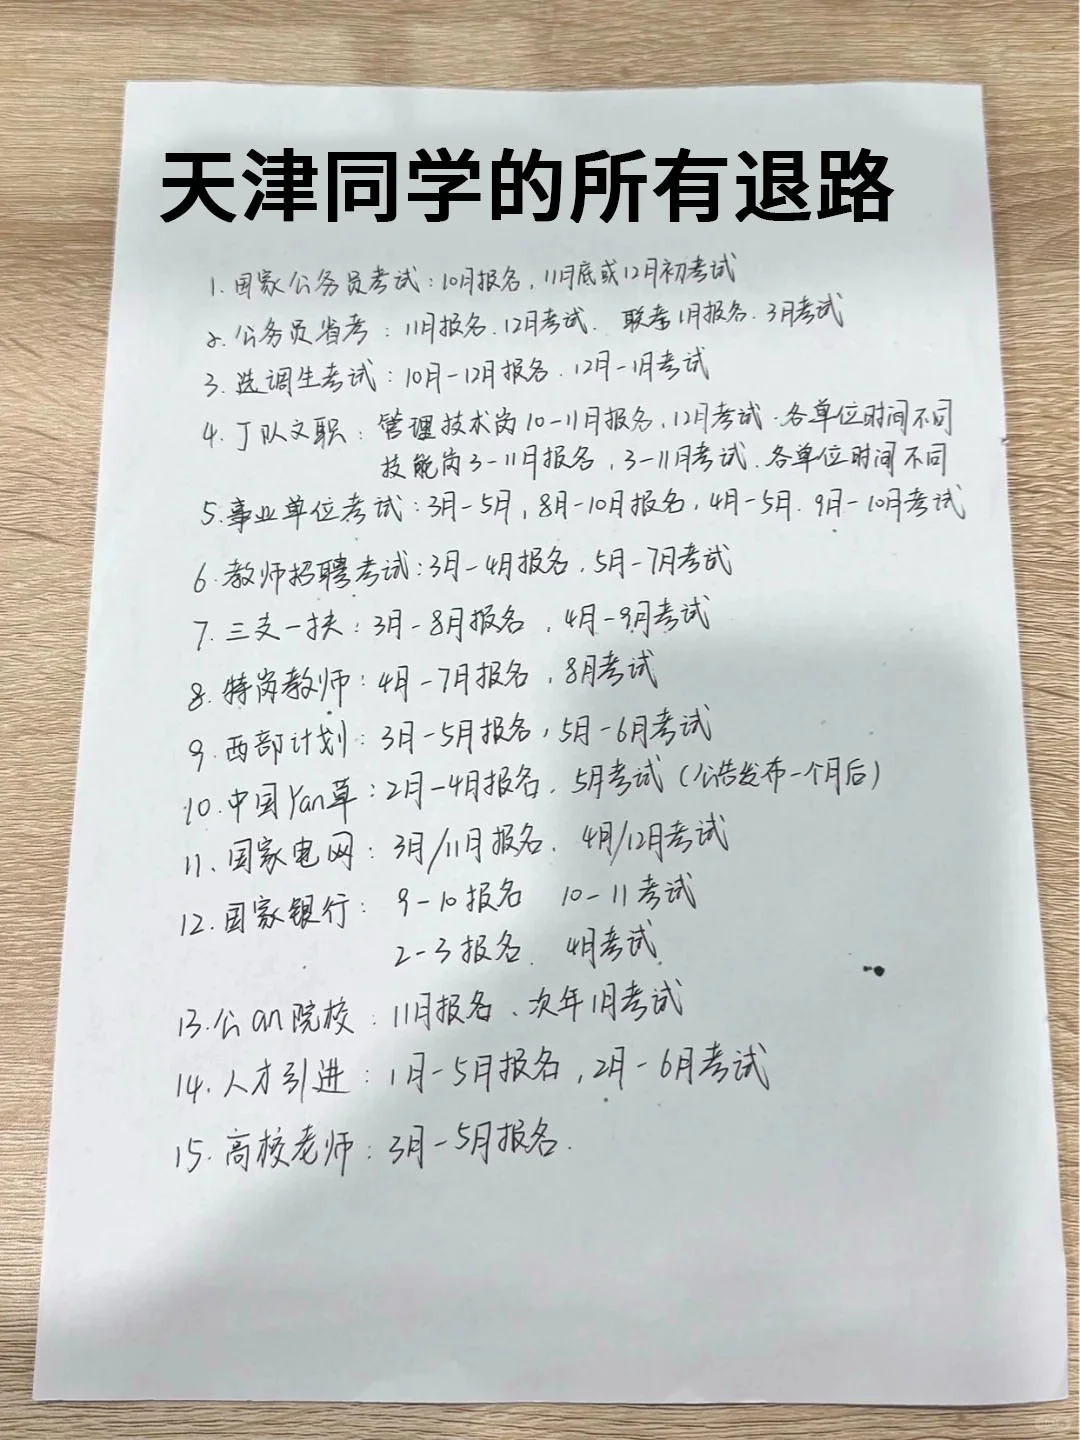 天津同学的所有退路
1. 国家公务员考试：10月报名，11月底或12月初考试
2. 公务员省考：11月报名．12月考试．联考1月报名．3月考试
3. 选调生考试：10月-12月报名．12月-1月考试
4. 丁队文职：管理技术岗10-11月报名，12月考试．各单位时间不同
技能岗3-11月报名，3-11月考试．各单位时间不同
5. 事业单位考试：3月-5月，8月-10月报名，4月-5月．9月-10月考试
6. 教师招聘考试：3月-4月报名．5月-7月考试
7. 三支一扶：3月-8月报名，4月-9月考试
8. 特岗教师：4月-7月报名，8月考试
9. 西部计划：3月-5月报名，5月-6月考试
10. 中国Yan草：2月-4月报名．5月考试（公告发布一个月后）
11. 国家电网：3月/11月报名．4月/12月考试
12. 国家银行：9-10报名 10-11考试
2-3报名．4月考试
13. 公an院校：11月报名、次年1月考试
14. 人才引进：1月-5月报名，2月-6月考试
15. 高校老师：3月-5月报名．